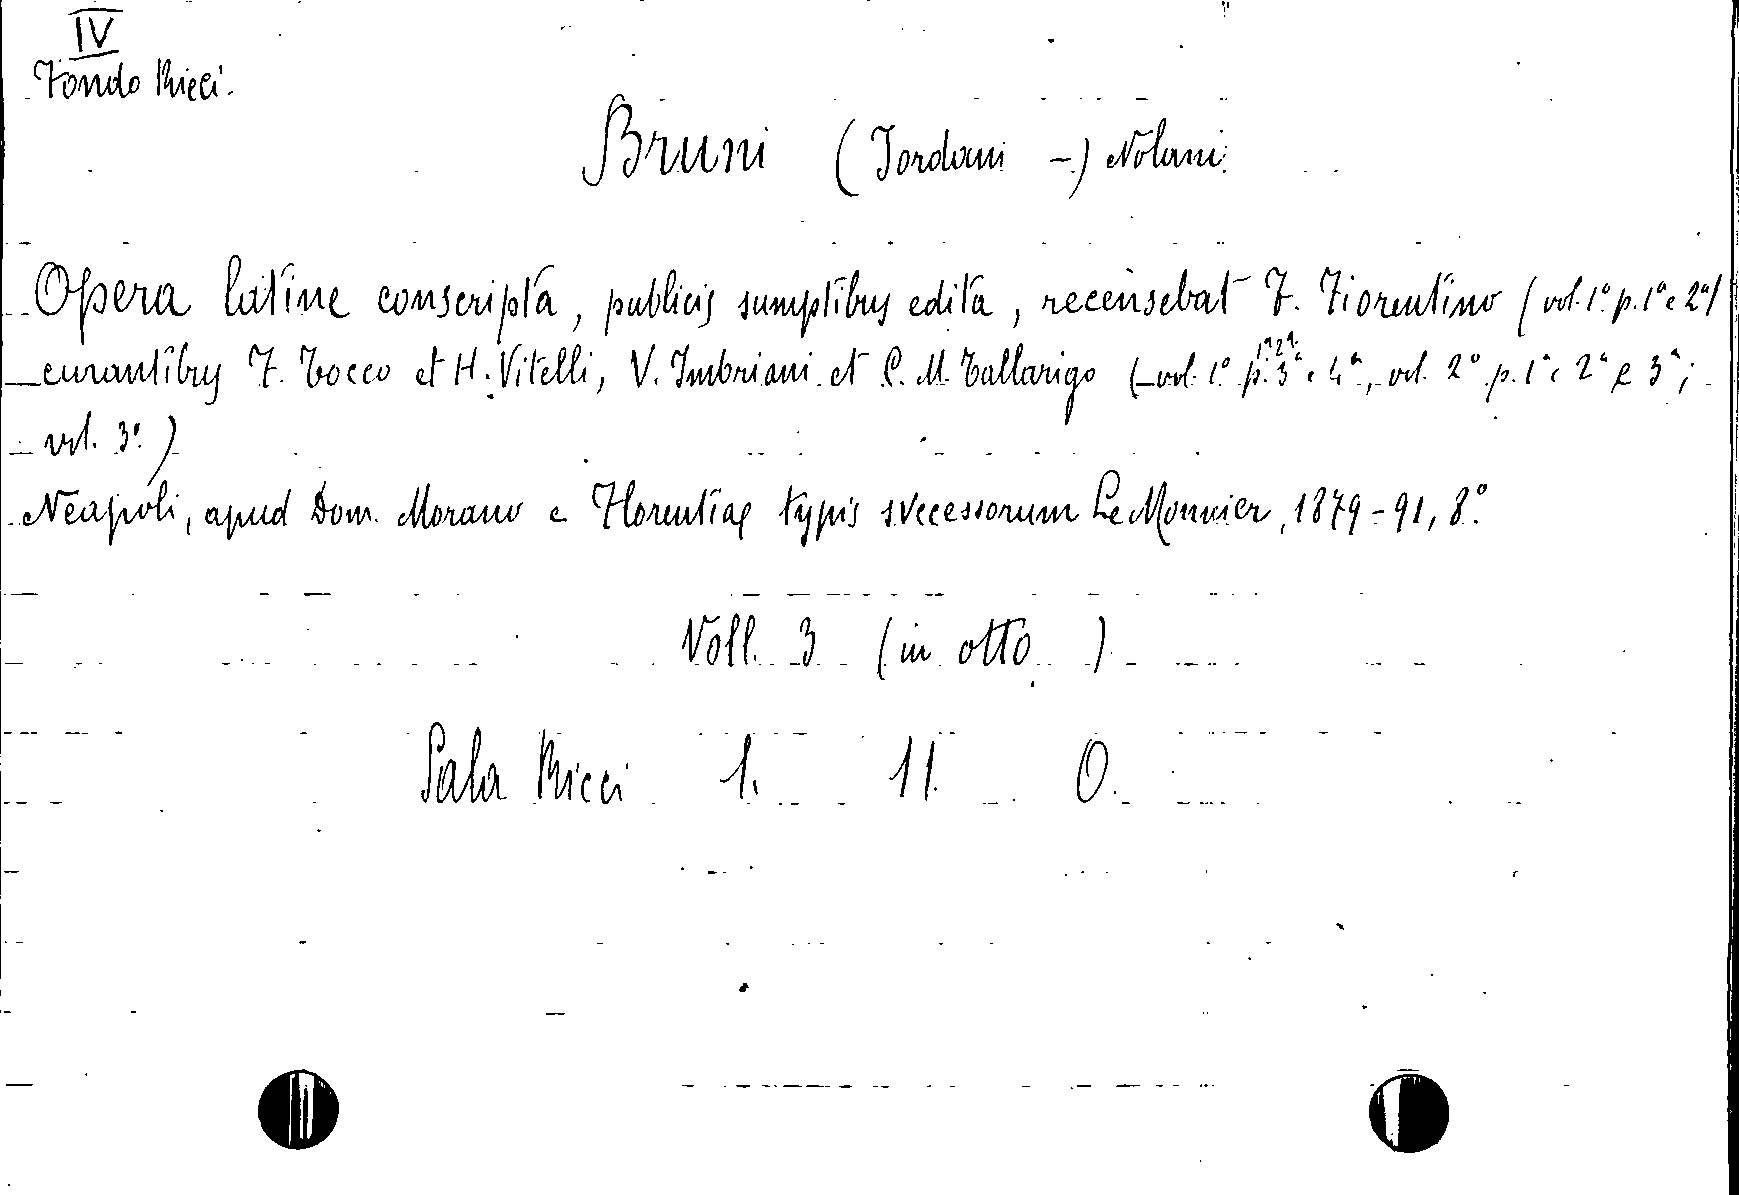 IV
Fondo Ricci.
Bruni (Jordani -) Nolani
Opera latine conscripta, publicis sumptibus edita, recensebat F. Fiorentino (vol. 1º p. 1ª e 2ª)
curantibus F. Tocco et H. Vitelli, V. Imbriani et C. M. Tallarigo (vol. 1º p. 3ª e 4ª, vol. 2º p. 1ª e 2ª e 3ª;
vol. 3º)
Neapoli, apud Dom. Morano e Florentiae typis successorum Le Monnier, 1879-91, 8º.
Voll. 3 (in otto )
Sala Ricci 1. 11. O.